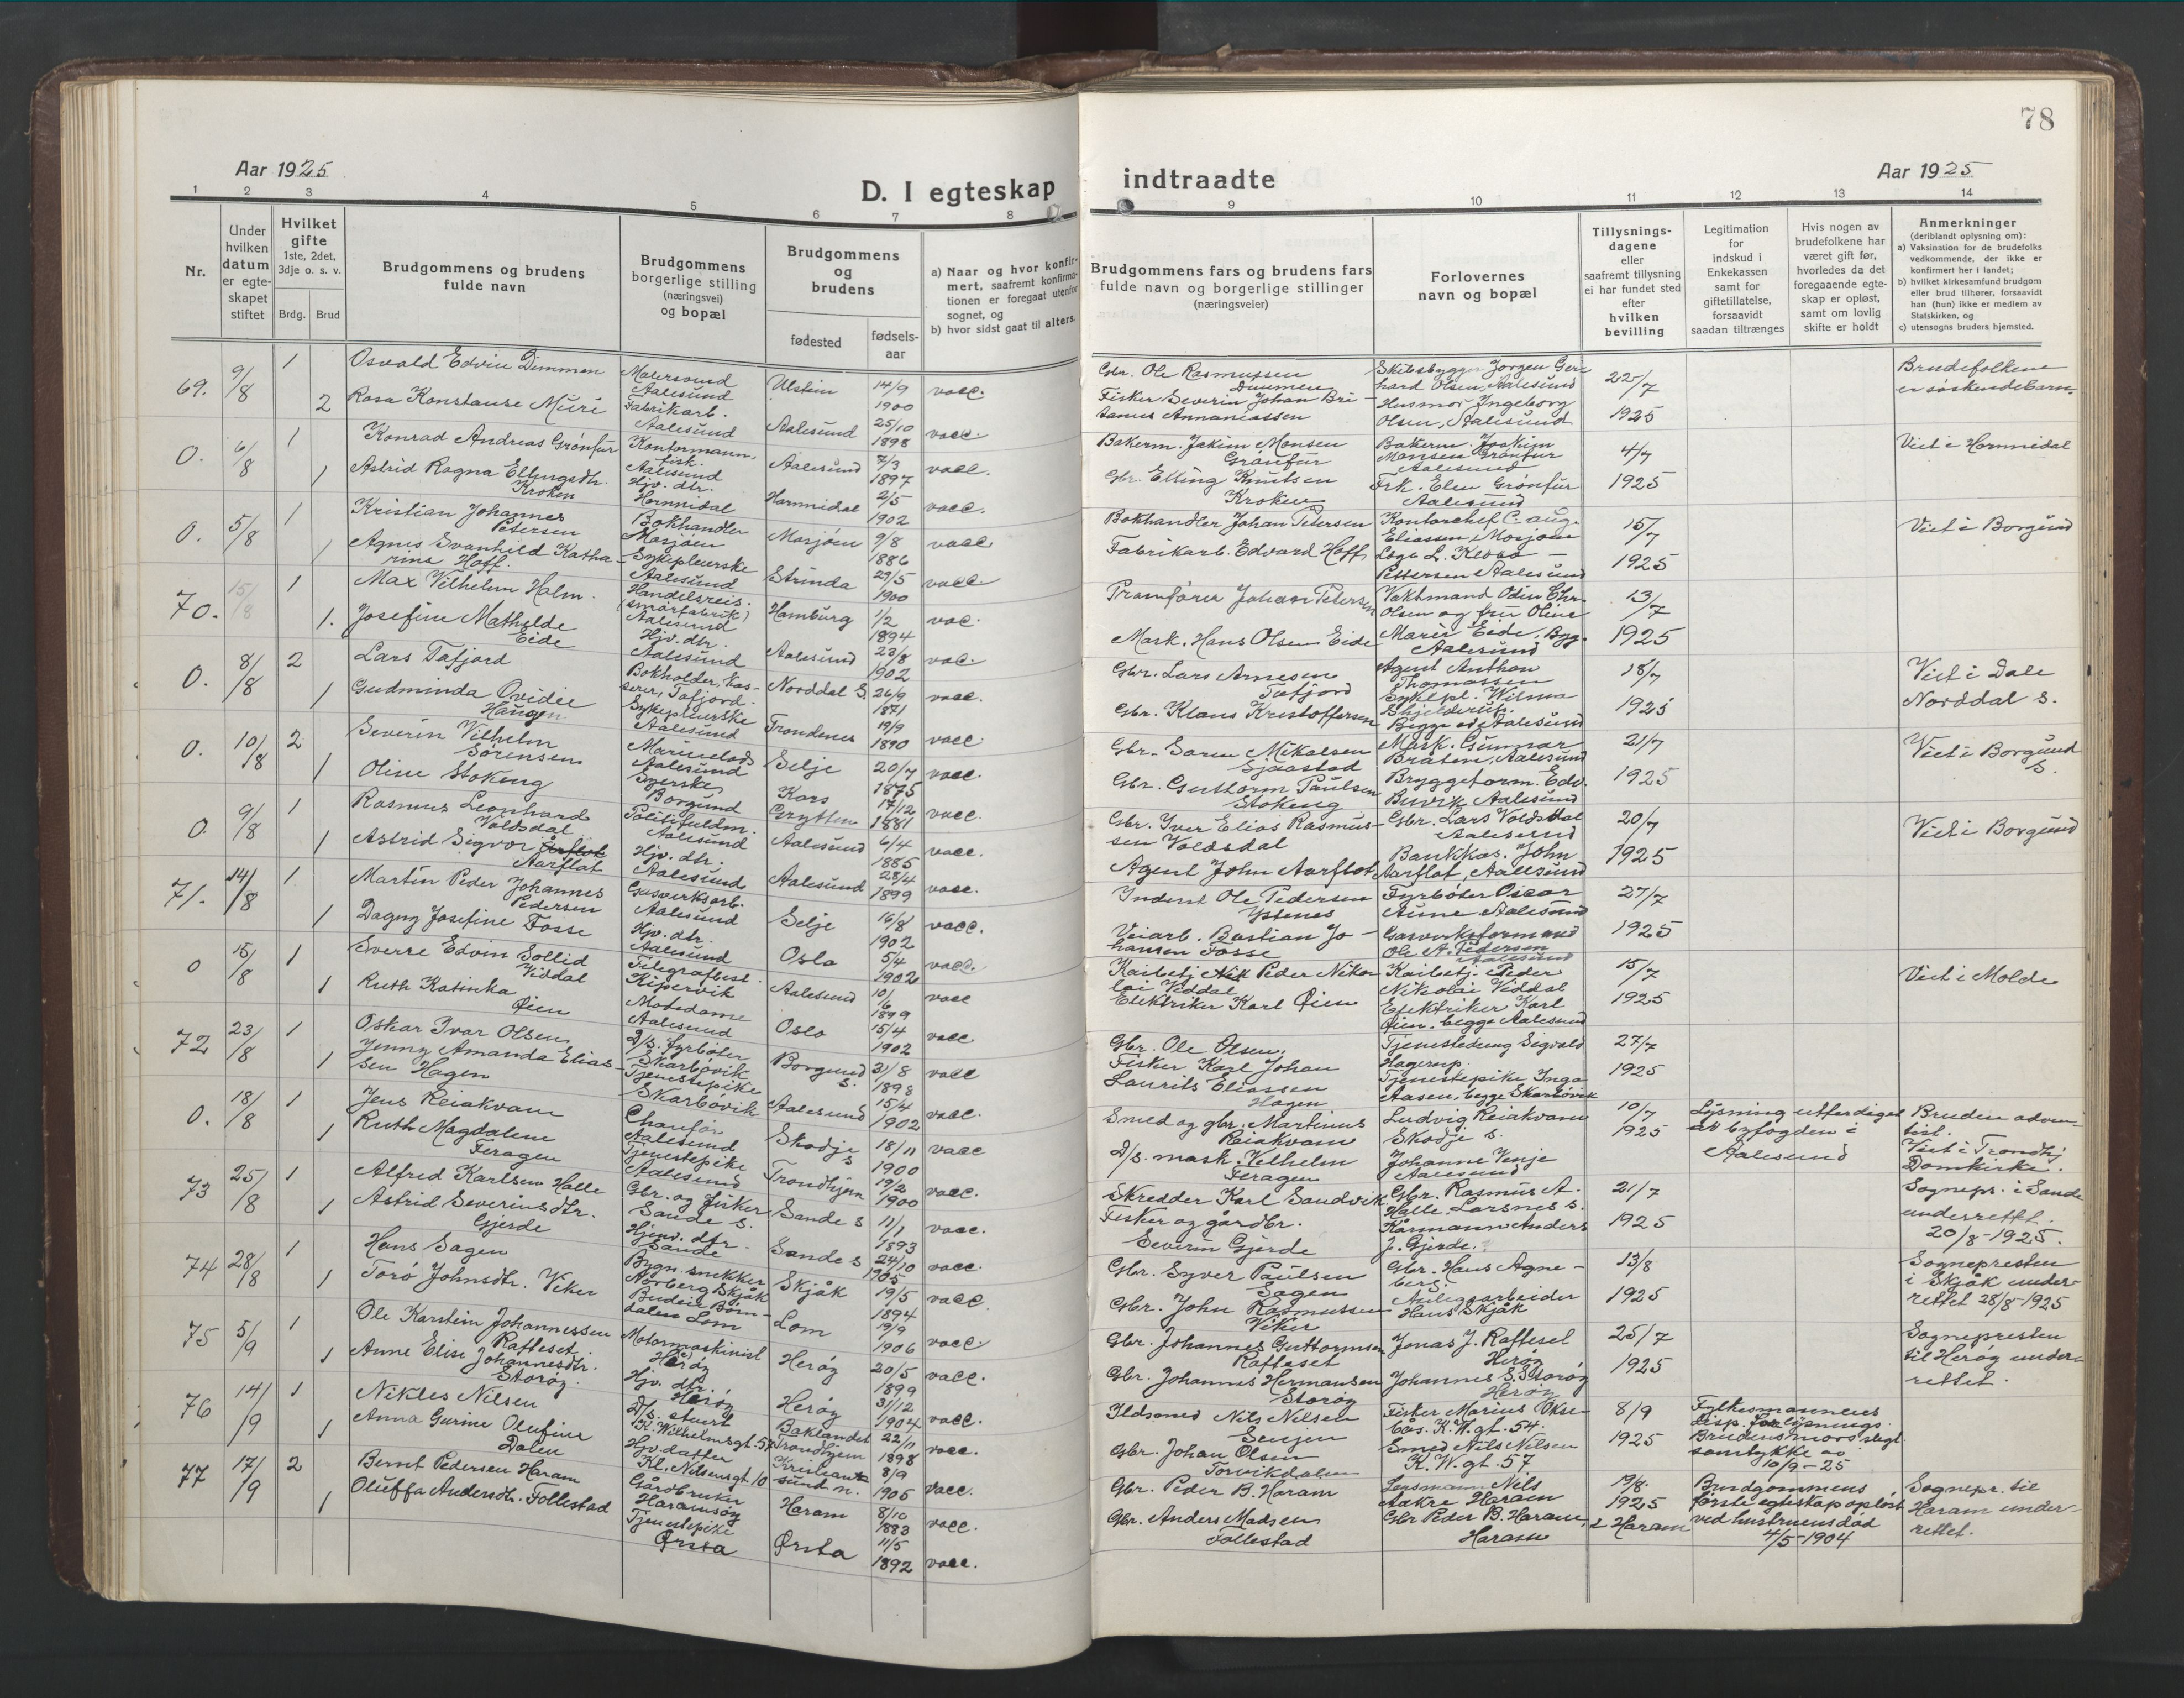 78
Aar 1925
D. I egteskap
indtraadte
Aar 1925
1 2 3 4 5 6 7 8
9 10 11 12 13 14
Nr.
Under hvilken datum er egteskapet stiftet
Hvilket gifte
1ste, 2det, 3dje o. s. v.
Brdg. Brud
Brudgommens og brudens fulde navn
Brudgommens borgerlige stilling (næringsvei) og bopæl
Brudgommens og brudens
fødested
fødselsaar
a) Naar og hvor konfirmert, saafremt konfirmationen er foregaat utenfor sognet, og
b) hvor sidst gaat til alters.
Brudgommens fars og brudens fars fulde navn og borgerlige stillinger (næringsveier)
Forlovernes navn og bopæl
Tillysningsdagene eller saafremt tillysning ei har fundet sted efter hvilken bevilling
Legitimation for indskud i Enkekassen samt for giftetillatelse, forsaavidt saadan tiltrænges
Hvis nogen av brudefolkene har været gift før, hvorledes da det foregaaende egteskap er opløst, samt om lovlig skifte er holdt
Anmerkninger
(deriblandt oplysning om):
a) Vaksination for de brudefolks vedkommende, der ikke er konfirmert her i landet;
b) hvilket kirkesamfund brudgom eller brud tilhører, forsaavidt han (hun) ikke er medlem av Statskirken, og
c) utensogns bruders hjemsted.
69. 9/8 1 Osvald Edvin Dimmen Malersvend Aalesund Ulstein 14/9 1900 vacc.
2 Rasa Konstanse Muri Fabrikarb. Aalesund Aalesund 25/10 1898 vacc.
Gbr. Ole Rasmussen Dimmen
Fisker Severin Johan Bri-
tanus Annaniassen
Skibsbygger Jørgen Ger-
hard Olsen, Aalesund
Husmor Ingeborg
Olsen, Aalesund
22/7 1925
Brudefolkene
er søskendebarn
0. 6/8 1 Konrad Andreas Grønfur Kontormann, fisk. Aalesund Aalesund 7/3 1897 vacc.
1 Astrid Ragna Ellingsdtr. Kroken Hjv. dtr. Hornindal Hornindal 2/5 1902 vacc.
Bakerm. Jakim Monsen Grønfur
Gbr. Elling Knutsen Kroken
Bakerm. Joakim
Monsen Grønfur
Aalesund
Frk. Elen Grønfur
Aalesund
4/7 1925
Viet i Hornindal
0. 5/8 1 Kristian Johannes Petersen Bokhandler Mosjøen Mosjøen 9/8 1886 vacc.
1 Agnes Svanhild Katha-
rina Hoff. Sykepleierske Aalesund Strinda 29/5 1900 vacc.
Bokhandler Johan Petersen
Fabrikarb. Edvard Hoff
Kontorchef C. Aug.
Eliassen, Mosjøen
Pettersen Aalesund
15/7 1925
Viet i Borgund
70. 15/8 1 Max Vilhelm Holm. Handelsreis. (smørfabrik) Aalesund Hamburg 1/2 1894 vac.
1. Josefine Mathilde Eide Hjv. dtr. Aalesund Aalesund 23/8 1902 vac.
Pramfører Johan Petersen
Mask. Hans Olsen Eide
Vaktmand Odin Chr.
Olsen og fru Oline
Marie Eide, Bgg.
Aalesund
13/7 1925
0. 8/8 2 Lars Tafjord Bokholder, Kas-
serer, Tafjord. Norddal S. 26/9 1871 vacc.
1 Gudminda Ovidie Haugen Sykepleierske Aalesund Trondenes 19/9 1890 vacc.
Gbr. Lars Arnesen Tafjord
Gbr. Klaus Kristoffersen
Agent Anthon
Thomassen
Sykepl. Wilma
Bhjelderup.
Begge av Aalesund
18/7 1925
Viet i Dale
Norddal s.
0. 10/8 2 Severin Vilhelm Sørensen Aalesund Selje 20/7 1875 vacc.
1 Oline Stokeng Syerske Borgund Kors Grytten 17/12 1881 vacc.
Gbr. Søren Mikalsen Sjaastad
Gbr. Guttorm Paulsen Stokeng
Mask. Gunnar
Braten, Aalesund
Bryggeform. Edv.
Bervik Aalesund
21/7 1925
Viet i Borgund
s.
0. 9/8 1 Rasmus Leonhard Voldsdal Politifuldm. Aalesund Aalesund 6/4 1885 vacc.
1 Astrid Sigvor Aarflot Hjv. dtr. Aalesund Aalesund 28/4 1899 vacc.
Gbr. Iver Elias Rasmus-
sen Voldsdal
Agent John Aarflot
Gbr. Lars Voldsdal
Aalesund
Bankkas. John
Aarflot, Aalesund
20/7 1925
Viet i Borgund
71. 14/8 1 Martin Peder Johannes Pedersen Gasverksarb. Aalesund Selje 16/8 1902 vacc.
1 Dagny Josefine Fosse Hjv. dtr. Aalesund Oslo 5/4 1902 vacc.
Inderst Ole Pedersen Ystenes
Veiarb. Bastian Jo-
hansen Fosse
Fyrbøter Oscar
Aune Aalesund
Gasverksformand
Ole A. Pedersen
Aalesund
27/7 1925
0 15/8 1 Sverre Edvin Sollid Viddal Telegrafbest. Kipervik Aalesund 10/6 1899 vacc
1 Ruth Katinka Øien Motedame Aalesund Oslo 15/4 1902 vacc
Kaibetj. Peder Niko-
lai Viddal
Elektriker Karl Øien
Kaibetj. Peder
Nikolai Viddal
Elektriker Karl
Øien. begge Aalesund
15/7 1925
Viet i Molde
72 23/8 1 Oskar Ivar Olsen D/s. fyrbøter Skarbøvik Borgund s. 31/8 1898 vacc
1 Jenny Amanda Elias-
sen Hagen Tjenestepike Skarbøvik Aalesund 15/4 1902 vacc.
Gbr. Ole Olsen,
Fisker Karl Johan
Laurits Eliassen
Hagen
Tjenestedreng Sigvald
Hagerup.
Tjenestepike Inga
Aasen, begge Skarbøvik
27/7 1925
0. 18/8 1 Jens Reiakvam Chaufør Aalesund Skodje s 18/11 1900 vacc
1 Ruth Magdalene Feragen Tjenestepike Aalesund Trondhjem 19/2 1900 vacc.
Smed og gbr. Martinus
Reiakvam
D/s. mask. Vilhelm
Feragen
Ludvig Reiakvam
Skodje s.
Johanne Venje
Aalesund
10/7 1925
Lysning utferdiget
av byfogden i
Aalesund
Bruden adven-
tist.
Viet i Trondhj
Domkirke.
73 25/8 1 Alfred Karlsen Halle Gbr. og fisker Sande s. Sande s 11/1 1893 vacc.
1 Astrid Severinsdtr. Gjerde Hjemv. dtr. Sande Sande s 24/10 1905 vacc.
Skredder Karl Sandvik
Fisker og gårdbr.
Severin Gjerde
Gbr. Rasmus A.
Halle. Larsnes s.
Kårmann Anders
J. Gjerde.
21/7 1925
Sognepr. i Sande
underrettet.
20/8-1925.
74 28/8 1 Hans Sagen Bygn. snekker Aarberg Skjåk Skjåk 19/5 1894 vacc.
1 Torø Johnsdtr. Viker Budeie Bøm-
dalen Lom Lom 19/9 1906 vacc
Gbr. Syver Paulsen
Sagen
Gbr. John Rasmussen
Viker
Gbr. Hans Agne-
berg.
Anlegsarbeider
Hans Skjåk
13/8 1925
Sognepresten
i Skjåk under-
rettet 28/8-1925
75 5/9 1 Ole Karstein Johannessen Rafteset. Motormaskinist Herøy Herøy 20/5 1899 vacc.
1 Anne Elise Johannesdtr. Storøy. Hjv. dtr. Herøy Herøy 31/12 1904 vacc.
Gbr. Johannes Guttormsen
Rafteset
Gbr. Johannes Hermansen
Storøy
Jonas J. Rafteset
Herøy
Johannes S. Storøy
Herøy
25/7 1925
Sognepresten
til Herøy under-
rettet.
76 14/9 1 Nikles Nilsen D/s. stuert K. Wilhelmsgt. 57 Baklandet Trondhjem 22/11 1898 vacc.
1 Anna Gurine Olufine Dalen Hjv. datter Kl. Nilsensgt. 10 Kristian-
sund n. 8/9 1905 vacc.
Ildsmed Nils Nilsen
Senjen
Gbr. Johan Olsen
Torvikdalen
Fisker Marius Økse-
bås. K. W. gt. 54.
Smed Nils Nilsen
K. W. gt. 57
8/9 1925
Fylkesmannens
disp. for lysnings.
Brudens mors skgt.
samtykke av
10/9-25
77 17/9 2 Bernt Pedersen Haram Gårdbruker Haramsøy Haram 8/10 1883 vacc.
1 Oluffa Andersdtr. Follestad Tjenestepike Ørsta Ørsta 11/5 1892 vacc.
Gbr. Peder B. Haram
Gbr. Anders Madsen
Follestad
Lensmann Nils
Aakre Haram
Gbr Peder B. Haram,
Haram
19/8 1925
i Haram
Brudgommens
første egteskap opløst
ved hustruens død
4/5-1904
Sognepr. til
Haram under-
rettet.